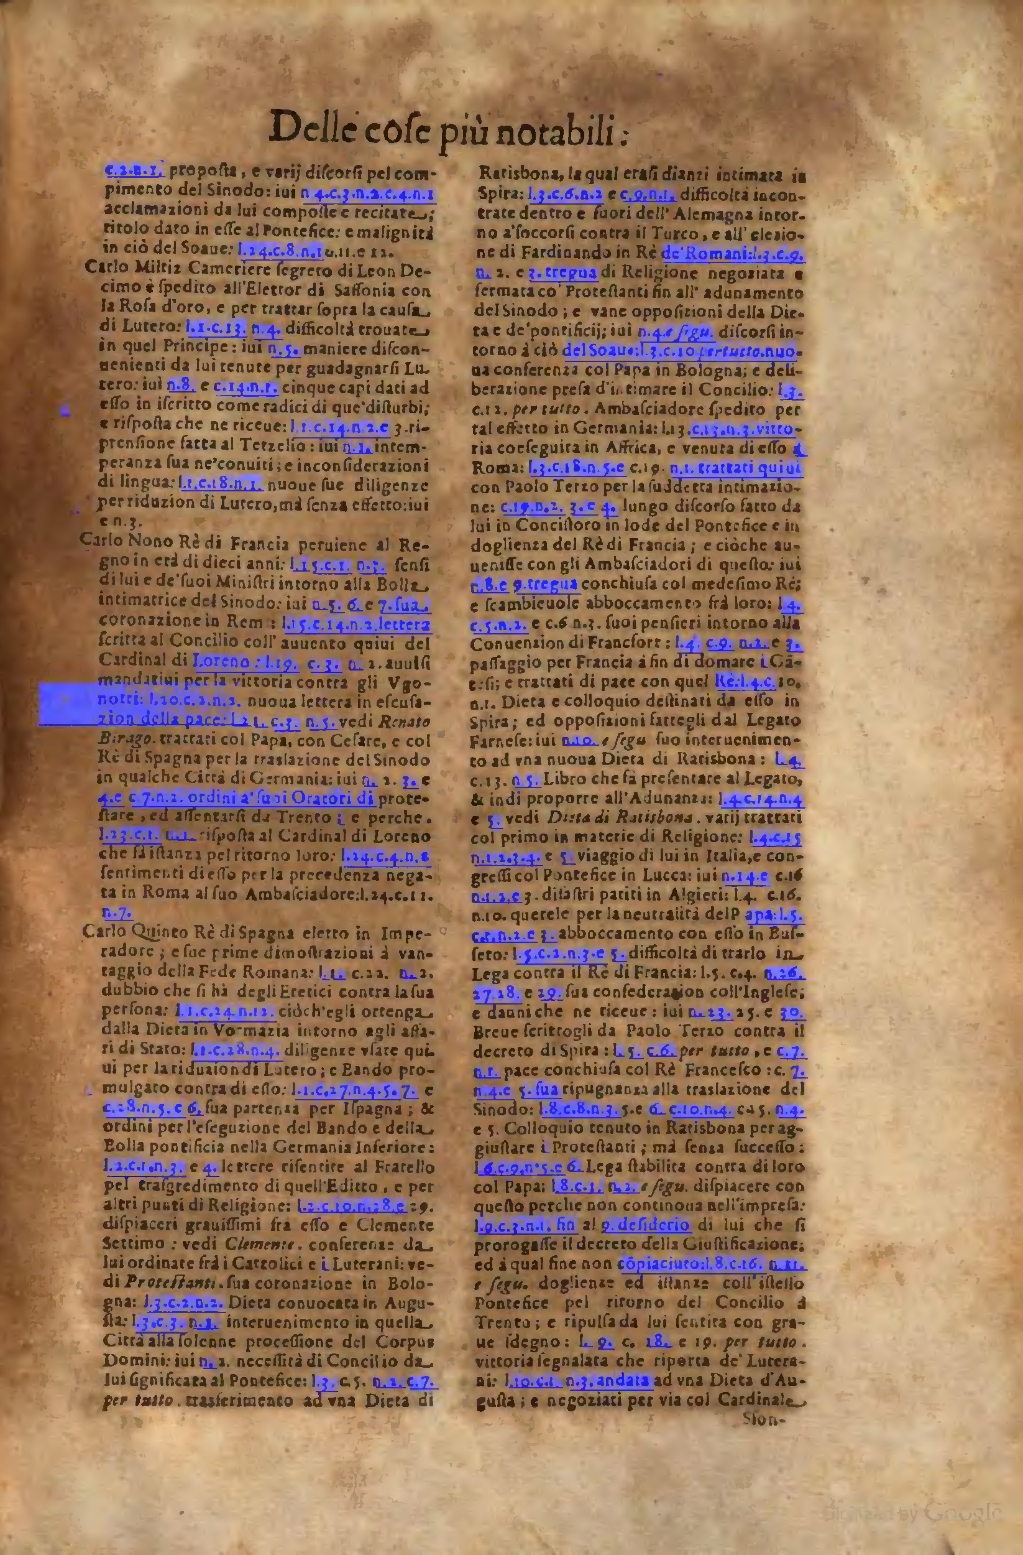 Delle coſe più notabili:
c.2.n.1. propoſta, e varij diſcorſi pel com-
pimento del Sinodo: iui n 4.c.3.n.2.c.4.n.1
acclamazioni da lui compoſte e recitate;
titolo dato in eſſe al Pontefice: e malignità
in ciò del Soaue: l.24.c.8.n.10.11.e 12.
Carlo Miltiz Cameriere ſegreto di Leon De-
cimo è ſpedito all'Elettor di Saſſonia con
la Roſa d'oro, e per trattar ſopra la cauſa
di Lutero: l.1.c.13. n.4. difficoltà trouate
in quel Principe: iui n.5. maniere diſcon-
uenienti da lui tenute per guadagnarſi Lu-
tero: iui n.8. e c.14.n.1. cinque capi dati ad
eſſo in iſcritto come radici di que'diſturbi;
e riſpoſta che ne riceue: l.1.c.14.n.2.e 3.ri-
prenſione fatta al Tetzelio: iui n.1. intem-
peranza ſua ne'conuiti; e inconſiderazioni
di lingua: l.1.c.18.n.1. nuoue ſue diligenze
per riduzion di Lutero, mà ſenza effetto: iui
e n.3.
Carlo Nono Rè di Francia peruiene al Re-
gno in età di dieci anni: l.15.c.1. n.3. ſenſi
di lui e de'ſuoi Miniſtri intorno alla Bolla
intimatrice del Sinodo: iui n.5. 6. e 7. ſua
coronazione in Rem : l.15.c.14.n.2. lettera
ſcritta al Concilio coll' auuento quiui del
Cardinal di Loreno : l.19. c. 3. n. 2. auuiſi
mandatiui per la vittoria contra gli Vgo-
notti: l.20.c.2.n.2. nuoua lettera in eſcuſa-
zion della pace: l.21. c.3. n.5. vedi Renato
Birago. trattati col Papa, con Ceſare, e col
Rè di Spagna per la traslazione del Sinodo
in qualche Città di Germania: iui n. 2. 3. e
4.e c.7.n.2. ordini a'ſuoi Oratori di prote-
ſtare, ed aſſentarſi da Trento ; e perche.
l.23.c.1. n.1. riſpoſta al Cardinal di Loreno
che fà iſtanza pel ritorno loro: l.24.c.4.n.1
ſentimenti di eſſo per la precedenza nega-
ta in Roma al ſuo Ambaſciadore: l.24.c.11.
n.7.
Carlo Quinto Rè di Spagna eletto in Impe-
radore ; e ſue prime dimoſtrazioni à van-
taggio della Fede Romana: l.1. c.22. n.2.
dubbio che ſi hà degli Eretici contra la ſua
perſona: l.1.c.24.n.12. ciòch'egli ottenga
dalla Dieta in Vormazia intorno agli affa-
ri di Stato: l.1.c.28.n.4. diligenze vſate qui-
ui per la riduzion di Lutero ; e Bando pro-
mulgato contra di eſſo: l.1.c.27.n.4.5. 7. e
c.28.n.5. e 6. ſua partenza per Iſpagna ; &
ordini per l'eſeguzione del Bando e della
Bolla pontificia nella Germania Inferiore:
l.2.c.1.n.3. e 4. lettere riſentite al Fratello
pel traſgredimento di quell'Editto , e per
altri punti di Religione: l.2.c.10.n.28.e 29.
diſpiaceri grauiſſimi frà eſſo e Clemente
Settimo : vedi Clemente. conferenze da
lui ordinate frà i Cattolici e i Luterani: ve-
di Proteſtanti. ſua coronazione in Bolo-
gna: l.3.c.2.n.2. Dieta conuocata in Augu-
ſta: l.3.c.3. n.1. interuenimento in quella
Città alla ſolenne proceſſione del Corpus
Domini: iui n. 2. neceſſità di Concilio da
lui ſignificata al Pontefice: l.3. c.5. n.2. c.7.
per tutto. trasferimento ad vna Dieta di
Ratisbona, la qual eraſi dianzi intimata in
Spira: l.3.c.6.n.2 e c.9.n.1. difficoltà incon-
trate dentro e fuori dell' Alemagna intor-
no a'ſoccorſi contra il Turco, e all' elezio-
ne di Fardinando in Rè de'Romani: l.3.c.9.
n. 2. e 3. tregua di Religione negoziata e
fermata co' Proteſtanti fin all' adunamento
del Sinodo ; e vane oppoſitioni della Die-
ta e de'pontificij; iui n.4. e ſegu. diſcorſi in-
torno à ciò del Soaue: l.3.c.10 per tutto. nuo-
ua conferenza col Papa in Bologna; e deli-
berazione preſa d'intimare il Concilio: l.3.
c.12. per tutto . Ambaſciadore ſpedito per
tal effetto in Germania: l.3.c.13.n.3. vitto-
ria conſeguita in Affrica, e venuta di eſſo à
Roma: l.3.c.18.n.5.e c.19. n.1. trattati quiui
con Paolo Terzo per la ſuddetta intimazio-
ne: c.19.n.2. 3.e 4. lungo diſcorſo fatto da
lui in Conciſtoro in lode del Pontefice e in
doglienza del Rè di Francia ; e ciòche au-
ueniſſe con gli Ambaſciadori di queſto: iui
n.8.e 9. tregua conchiuſa col medeſimo Rè;
e ſcambieuole abboccamento frà loro: l.4.
c.5.n.2. e c.6 n.3. ſuoi penſieri intorno alla
Conuenzion di Francfort : l.4. c.9. n.2. e 3.
paſſaggio per Francia à fin di domare i Gā-
teſi; e trattati di pace con quel Rè: l.4.c.10.
n.1. Dieta e colloquio deſtinati da eſſo in
Spira; ed oppoſizioni fattegli dal Legato
Farneſe: iui n.10. e ſegu ſuo interuenimen-
to ad vna nuoua Dieta di Ratisbona : l.4.
c.13. n 5. Libro che fà preſentare al Legato,
& indi proporre all'Adunanza: l.4.c.14.n.4
e 5. vedi Dieta di Ratisbona . varij trattati
col primo in materie di Religione: l.4.c.15
n.1.2.3.4. e 5. viaggio di lui in Italia, e con-
greſſi col Pontefice in Lucca: iui n.14.e c.16
n.1.2.e 3. diſaſtri patiti in Algieri: l.4. c.16.
n.10. querele per la neutralità del Papa: l.5.
c.1.n.2.e 3. abboccamento con eſſo in Buſ-
ſeto: l.5.c.2.n.3.e 5. difficoltà di trarlo in
Lega contra il Rè di Francia: l.5. c.4. n.26.
27.28. e 29. ſua confederazion coll'Ingleſe;
e danni che ne riceue : iui n.23. 25. e 30.
Breue ſcrittogli da Paolo Terzo contra il
decreto di Spira : l. 5. c.6. per tutto , e c.7.
n.1. pace conchiuſa col Rè Franceſco : c. 7.
n.4.e 5. ſua ripugnanza alla traslazione del
Sinodo: l.8.c.8.n.3. 5.e 6. c.10.n.4. c.15. n.4.
e 5. Colloquio tenuto in Ratisbona per ag-
giuſtare i Proteſtanti ; mà ſenza ſucceſſo :
l.6.c.9.n.5.e 6. Lega ſtabilita contra di loro
col Papa: l.8.c.1. n.2. e ſegu. diſpiacere con
queſto perche non continoua nell'impreſa:
l.9.c.3.n.1. fin al 9. deſiderio di lui che ſi
prorogaſſe il decreto della Giuſtificazione;
ed à qual fine non cōpiaciuto: l.8.c.16. n.11.
e ſegu. doglienze ed iſtanze coll'iſteſſo
Pontefice pel ritorno del Concilio à
Trento ; e ripulſa da lui ſentita con gra-
ue ſdegno : l. 9. c. 18. e 19. per tutto .
vittoria ſegnalata che riporta de' Lutera-
ni: l.10.c.1. n.3. andata ad vna Dieta d'Au-
guſta ; e negoziati per via col Cardinale
Sfon-
Digitized by Google